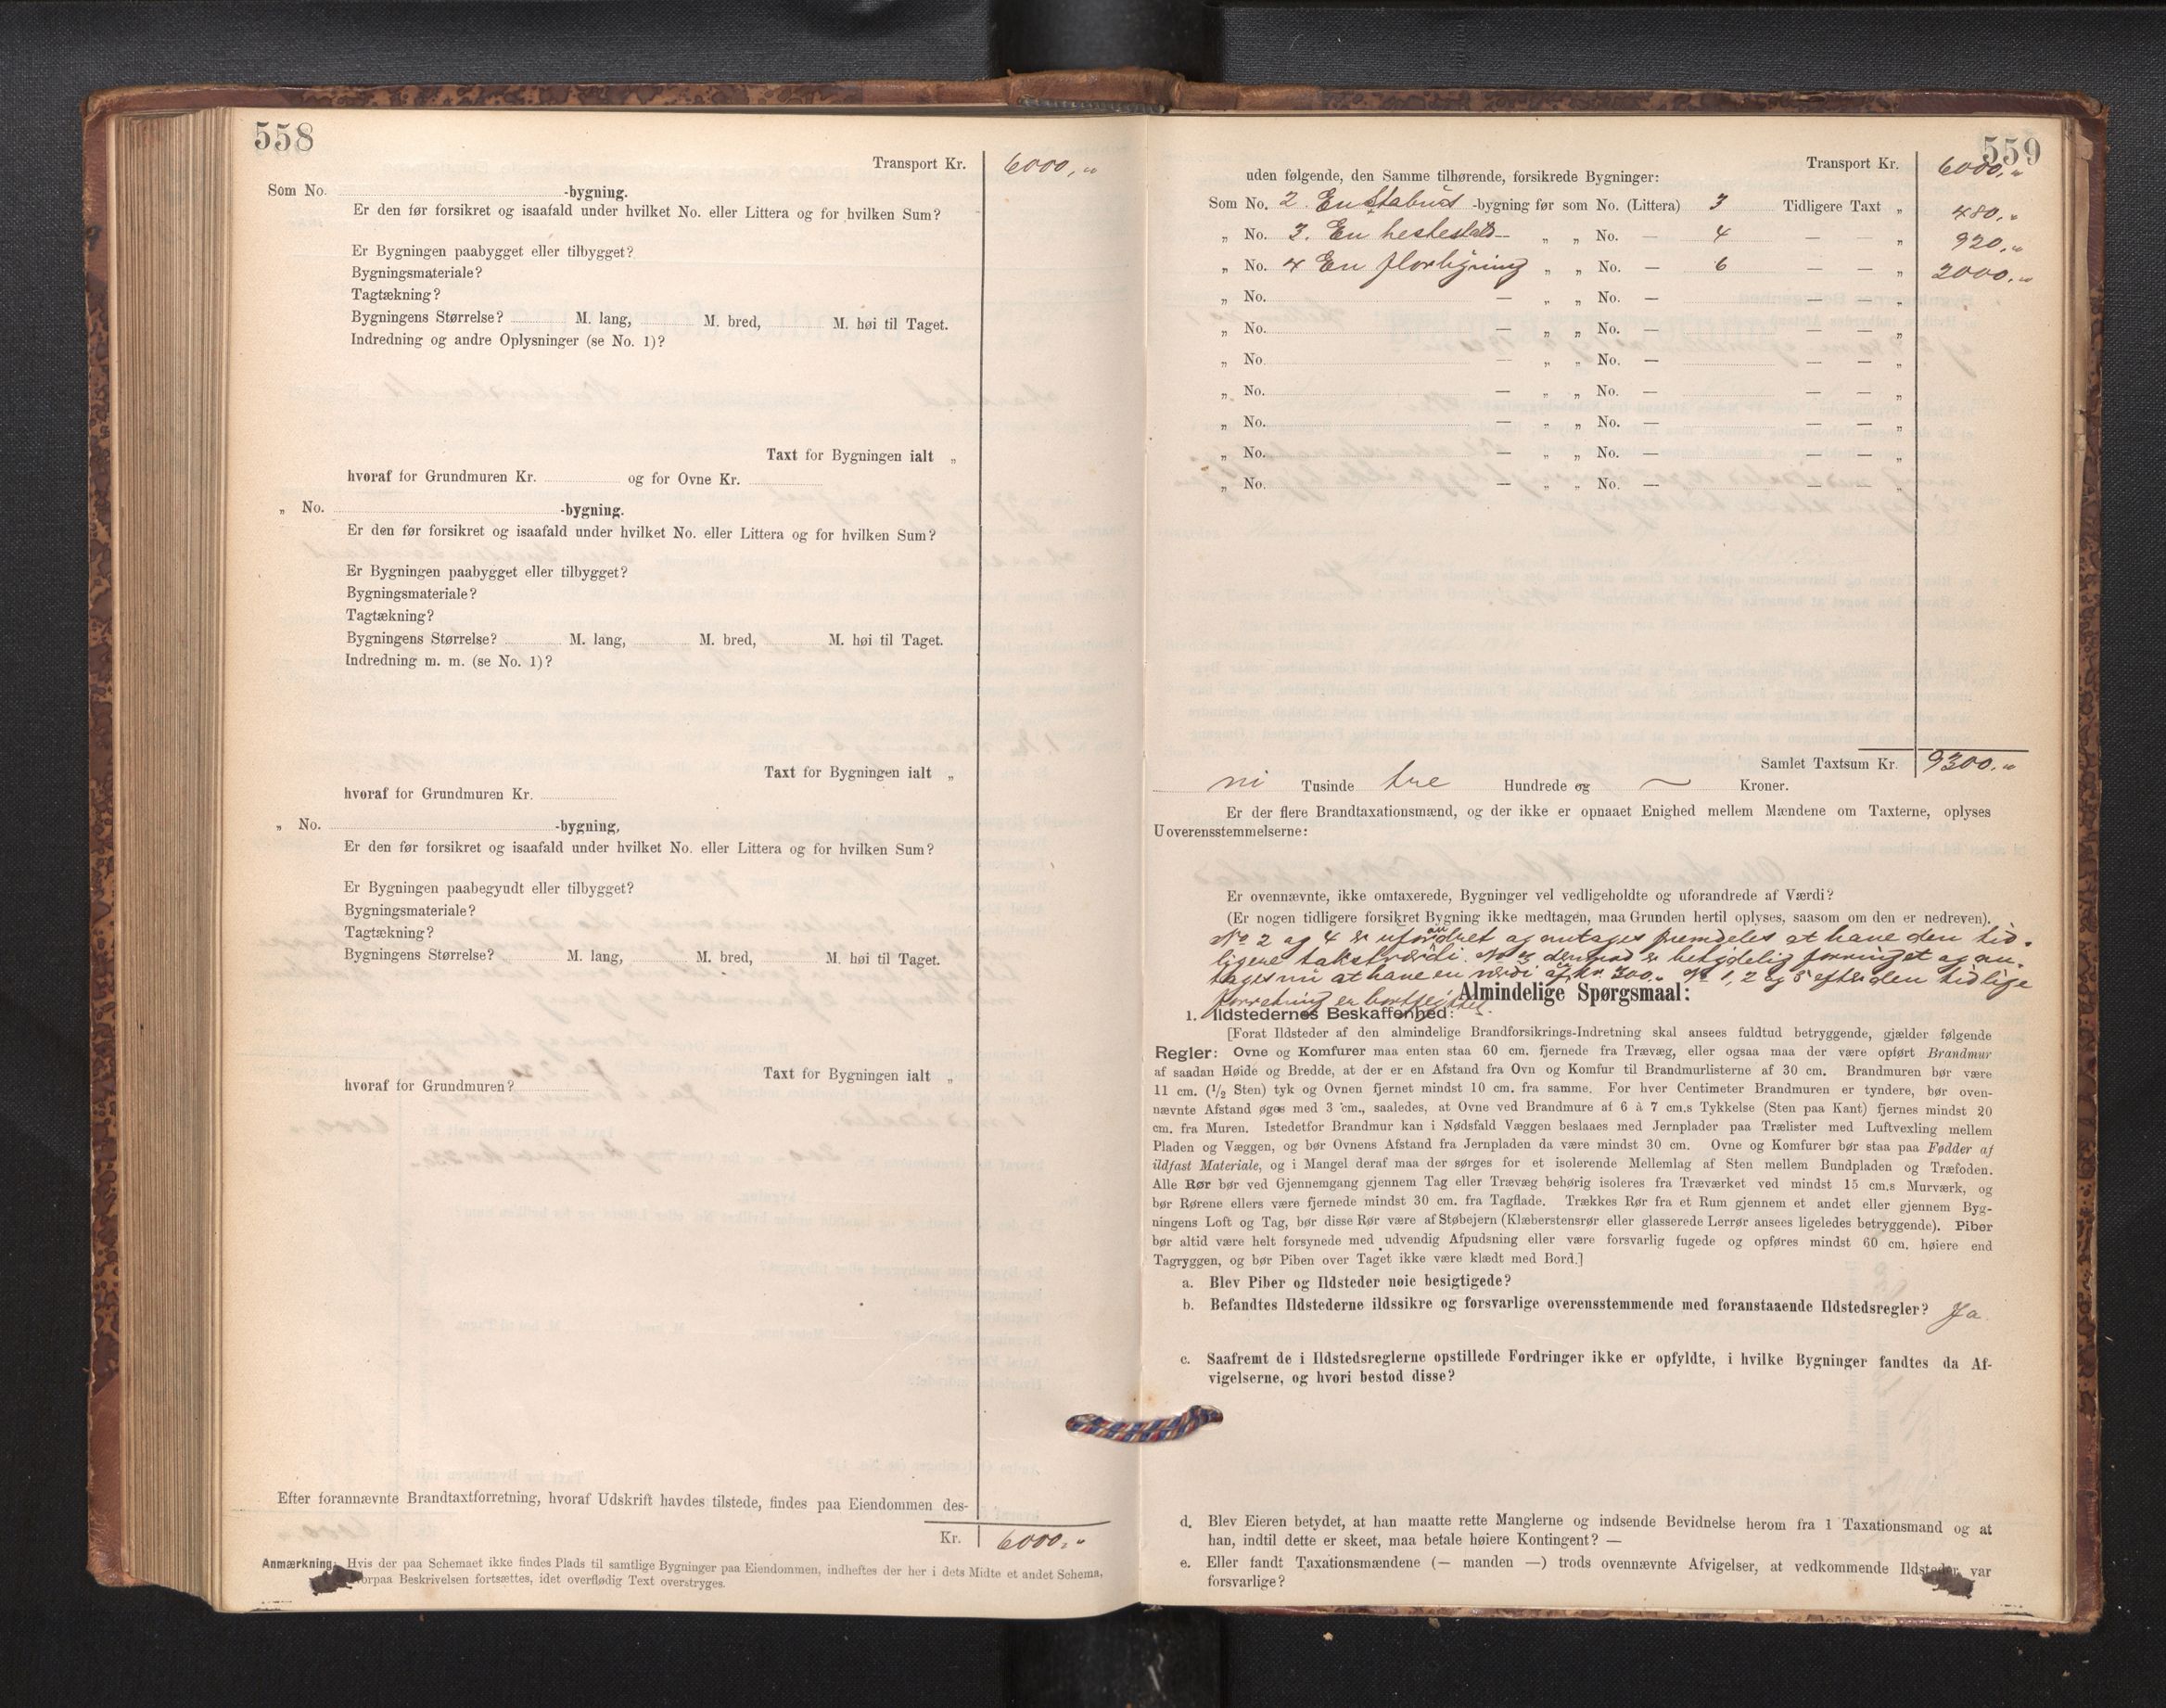 558
Transport Kr. 6000,"
Som No. -bygning.
Er den før forsikret og isaafald under hvilket No. eller Littera og for hvilken Sum?
Er Bygningen paabygget eller tilbygget?
Bygningsmateriale?
Tagtækning?
Bygningens Størrelse? M. lang, M. bred, M. høi til Taget.
Indredning og andre Oplysninger (se No. 1)?
Taxt for Bygningen ialt „
hvoraf for Grundmuren Kr. og for Ovne Kr.
„ No. -bygning.
Er den før forsikret og isaafald under hvilket No. eller Littera og for hvilken Sum?
Er Bygningen paabygget eller tilbygget?
Bygningsmateriale?
Tagtækning?
Bygningens Størrelse? M. lang, M. bred, M. høi til Taget.
Indredning m. m. (se No. 1)?
Taxt for Bygningen ialt „
hvoraf for Grundmuren Kr.
„ No. -bygning,
Er den før forsikret og isaafald under hvilket No. eller Littera og for hvilken Sum?
Er Bygningen paabegyndt eller tilbygget?
Bygningsmateriale?
Tagtækning?
Bygningens Størrelse? M. lang, M. bred, M. høi til Taget.
Taxt for Bygningen ialt „
hvoraf for Grundmuren?
Efter forannævnte Brandtaxtforretning, hvoraf Udskrift havdes tilstede, findes paa Eiendommen des-
Kr. 6000,"
Anmærkning. Hvis der paa Schemaet ikke findes Plads til samtlige Bygninger paa Eiendommen, indheftes der her i dets Midte et andet Schema,
hvorpaa Beskrivelsen fortsættes, idet overflødig Text overstryges.
559
Transport Kr. 6000,"
uden følgende, den Samme tilhørende, forsikrede Bygninger:
Som No. 2 En Staburs -bygning før som No. (Littera) 3 Tidligere Taxt „ 480,"
„ No. 3. En hestestald — „ „ No. — 4 — — „ 920,"
„ No. 4 En florbygning „ „ No. — 6 — — „ 2000,"
„ No. — „ „ No. — „
„ No. — „ „ No. — — — „
„ No. — „ „ No. — — — „
„ No. — „ „ No. — — — „
„ No. — „ „ No. — — — „
„ No. — „ „ No. — — — „
„ No. — „ „ No. — — — „
Samlet Taxtsum Kr. 9300,"
ni Tusinde tre Hundrede og — Kroner.
Er der flere Brandtaxationsmænd, og der ikke er opnaaet Enighed mellem Mændene om Taxterne, oplyses
Uoverensstemmelserne:
Er ovennævnte, ikke omtaxerede, Bygninger vel vedligeholdte og uforandrede af Værdi?
(Er nogen tidligere forsikret Bygning ikke medtagen, maa Grunden hertil oplyses, saasom om den er nedreven).
No 2 og 4 er uforandret og antages fremdeles at have den tid-
ligere takstværdi. No 3 derimod er betydelig forringet og an-
tages nu at have en værdi af kr. 300," No 1, 2 og 5 efter den tidlige
forretning er bortfeiet.
Almindelige Spørgsmaal:
1. Ildstedernes Beskaffenhed:
[Forat Ildsteder af den almindelige Brandforsikrings-Indretning skal ansees fuldtud betryggende, gjælder følgende
Regler: Ovne og Komfurer maa enten staa 60 cm. fjernede fra Trævæg, eller ogsaa maa der være opført Brandmur
af saadan Høide og Bredde, at der er en Afstand fra Ovn og Komfur til Brandmurlisterne af 30 cm. Brandmuren bør være
11 cm. (1/2 Sten) tyk og Ovnen fjernet mindst 10 cm. fra samme. For hver Centimeter Brandmuren er tyndere, bør oven-
nævnte Afstand øges med 3 cm., saaledes, at Ovne ved Brandmure af 6 à 7 cm.s Tykkelse (Sten paa Kant) fjernes mindst 20
cm. fra Muren. Istedetfor Brandmur kan i Nødsfald Væggen beslaaes med Jernplader paa Trælister med Luftvexling mellem
Pladen og Væggen, og bør Ovnens Afstand fra Jernpladen da være mindst 30 cm. Ovne og Komfurer bør staa paa Fødder af
ildfast Materiale, og i Mangel deraf maa der sørges for et isolerende Mellemlag af Sten mellem Bundpladen og Træfoden.
Alle Rør bør ved Gjennemgang gjennem Tag eller Trævæg behørig isoleres fra Træværket ved mindst 15 cm.s Murværk, og
bør Rørene ellers være fjernede mindst 30 cm. fra Tagflade. Trækkes Rør fra et Rum gjennem et andet eller gjennem Byg-
ningens Loft og Tag, bør disse Rør være af Støbejern (Klæberstensrør eller glasserede Lerrør ansees ligeledes betryggende). Piber
bør altid være helt forsynede med udvendig Afpudsning eller være forsvarlig fugede og opføres mindst 60 cm. høiere end
Tagryggen, og bør Piben over Taget ikke være klædt med Bord.]
a. Blev Piber og Ildsteder nøie besigtigede?
b. Befandtes Ildstederne ildssikre og forsvarlige overensstemmende med foranstaaende Ildstedsregler? Ja
c. Saafremt de i Ildstedsreglerne opstillede Fordringer ikke er opfyldte, i hvilke Bygninger fandtes da Af-
vigelserne, og hvori bestod disse?
d. Blev Eieren betydet, at han maatte rette Manglerne og indsende Bevidnelse herom fra 1 Taxationsmand og at
han, indtil dette er skeet, maa betale høiere Kontingent? —
e. Eller fandt Taxationsmændene (— manden —) trods ovennævnte Afvigelser, at vedkommende Ildsteder var
forsvarlige?